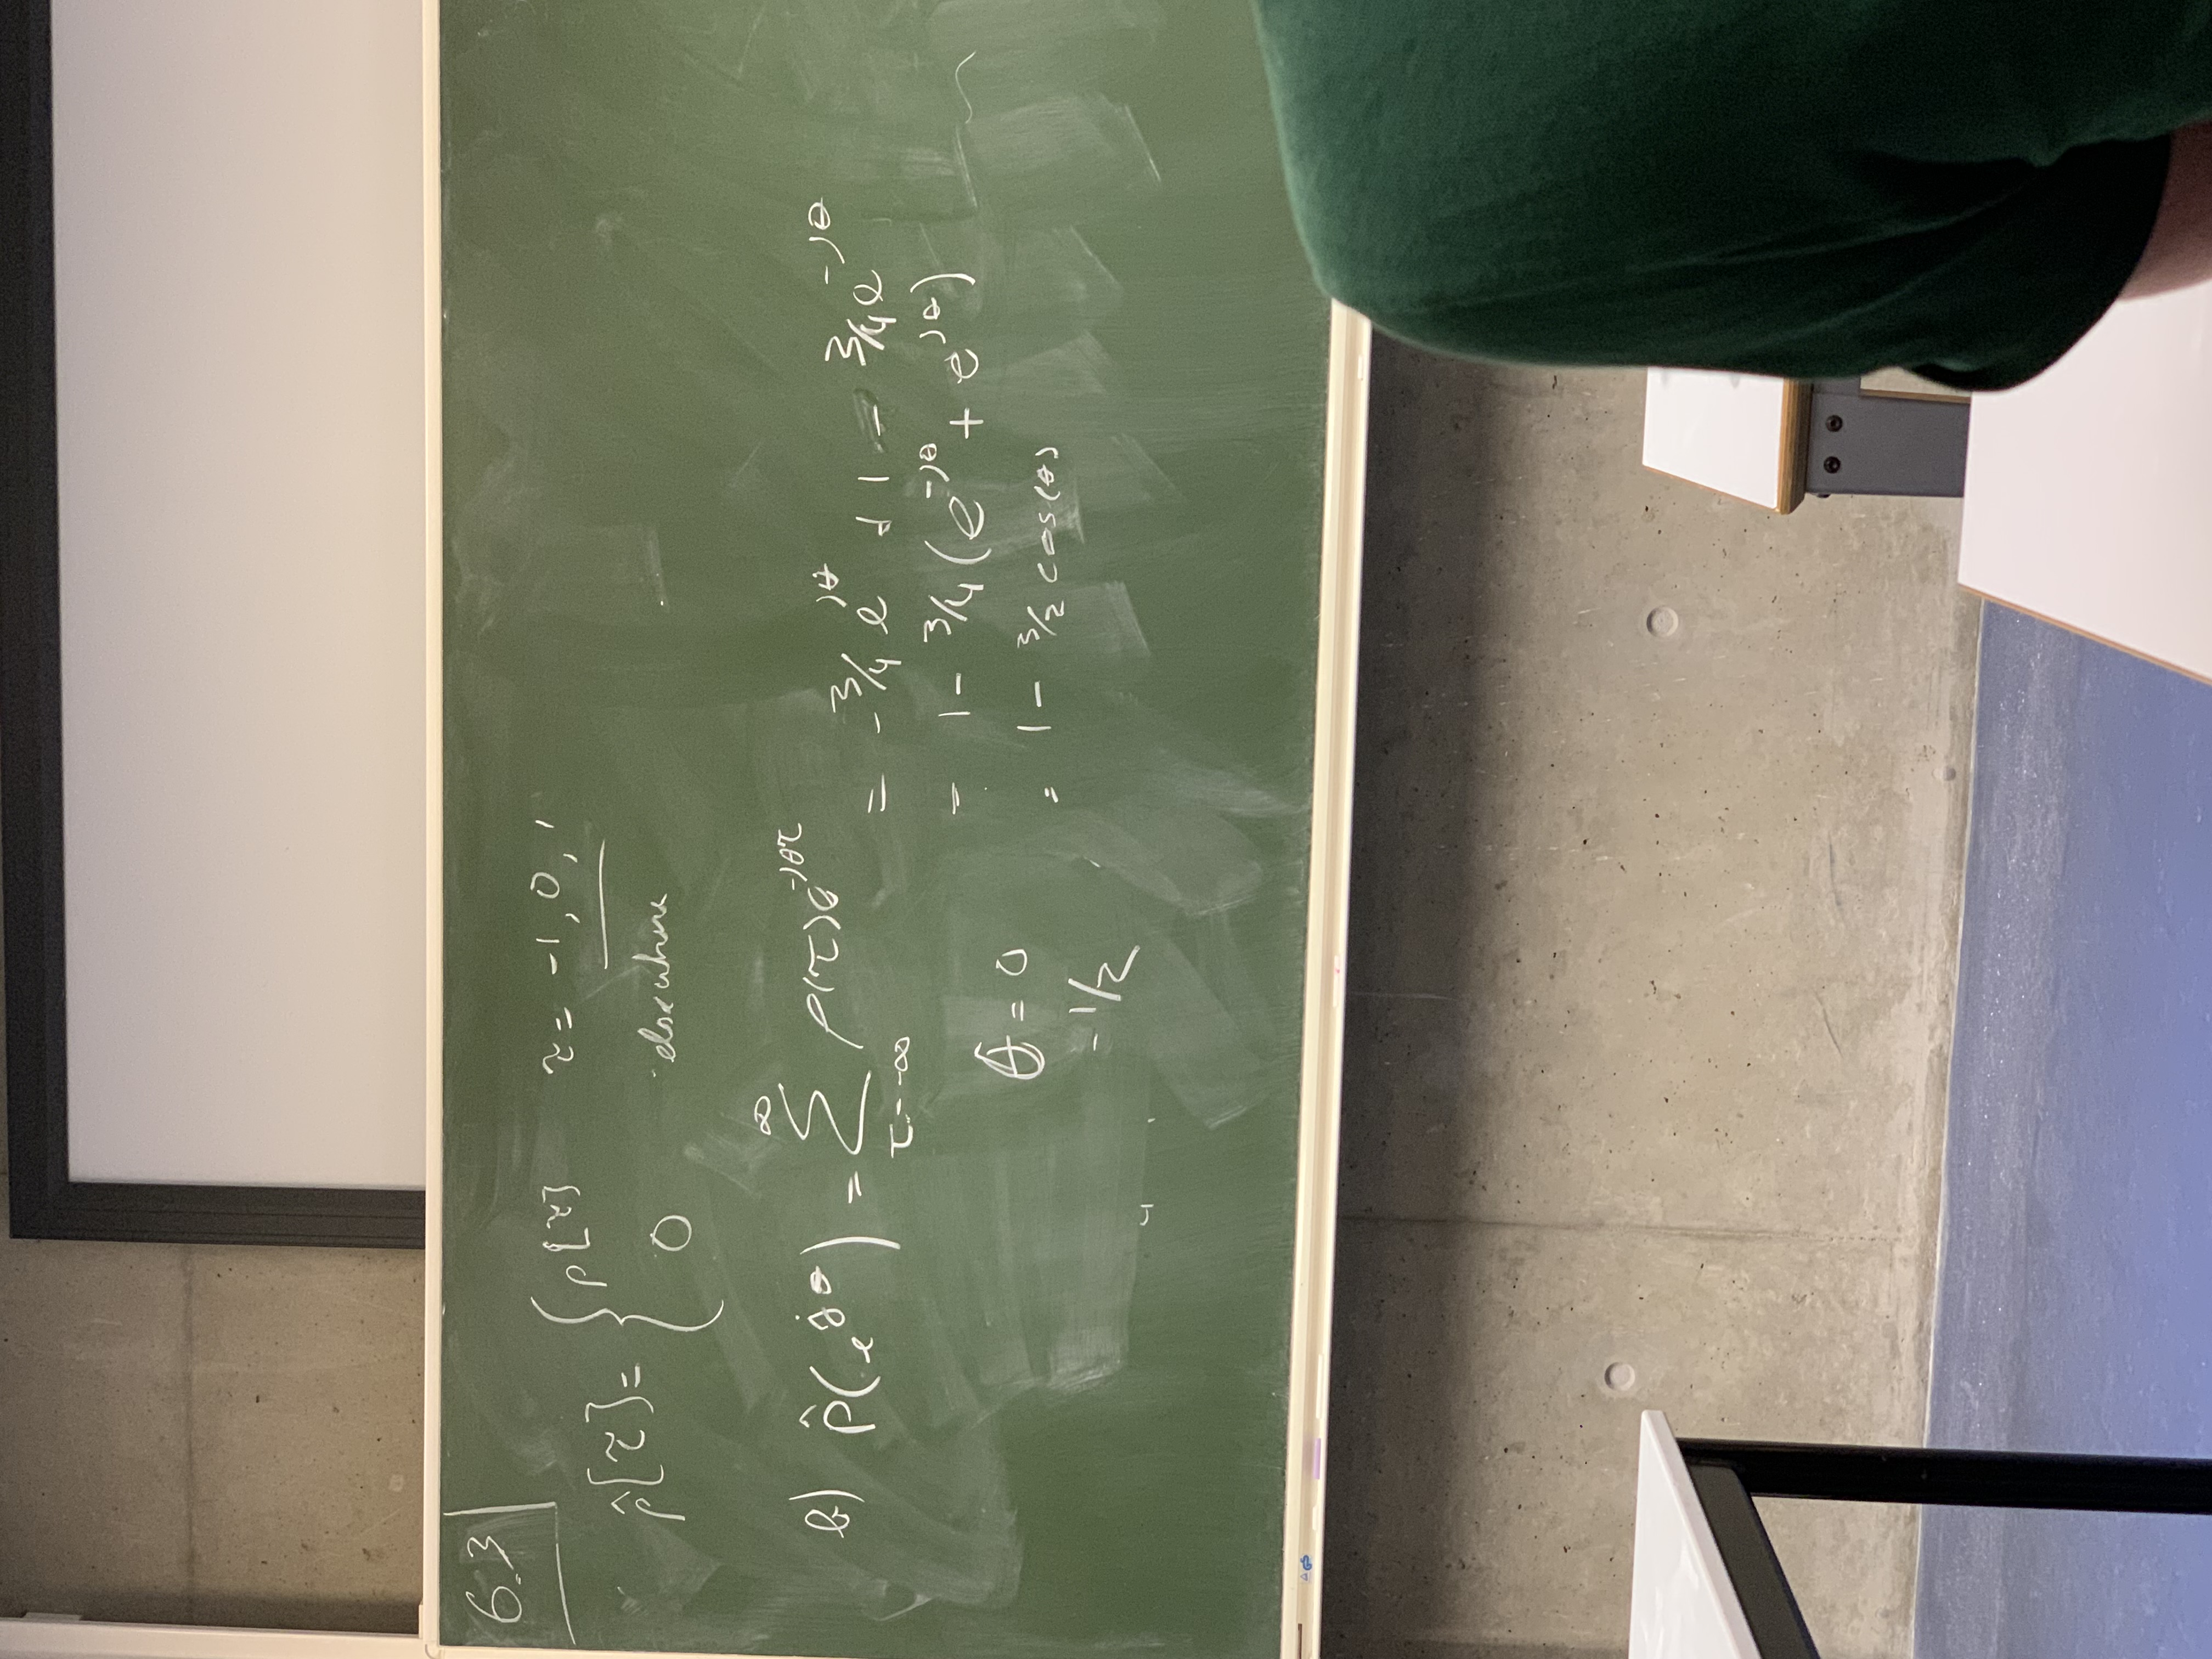 6.3
ρ̂[τ] = { ρ[τ]   τ = -1, 0, 1
0   elsewhere
b) P̂(e^{jθ}) = ∑_{τ=-∞}^{∞} ρ(τ)e^{-jθτ} = -3/4 e^{jθ} + 1 - 3/4 e^{-jθ}
= 1 - 3/4 (e^{-jθ} + e^{jθ})
θ = 0   = 1 - 3/2 cos(θ)
-1/2